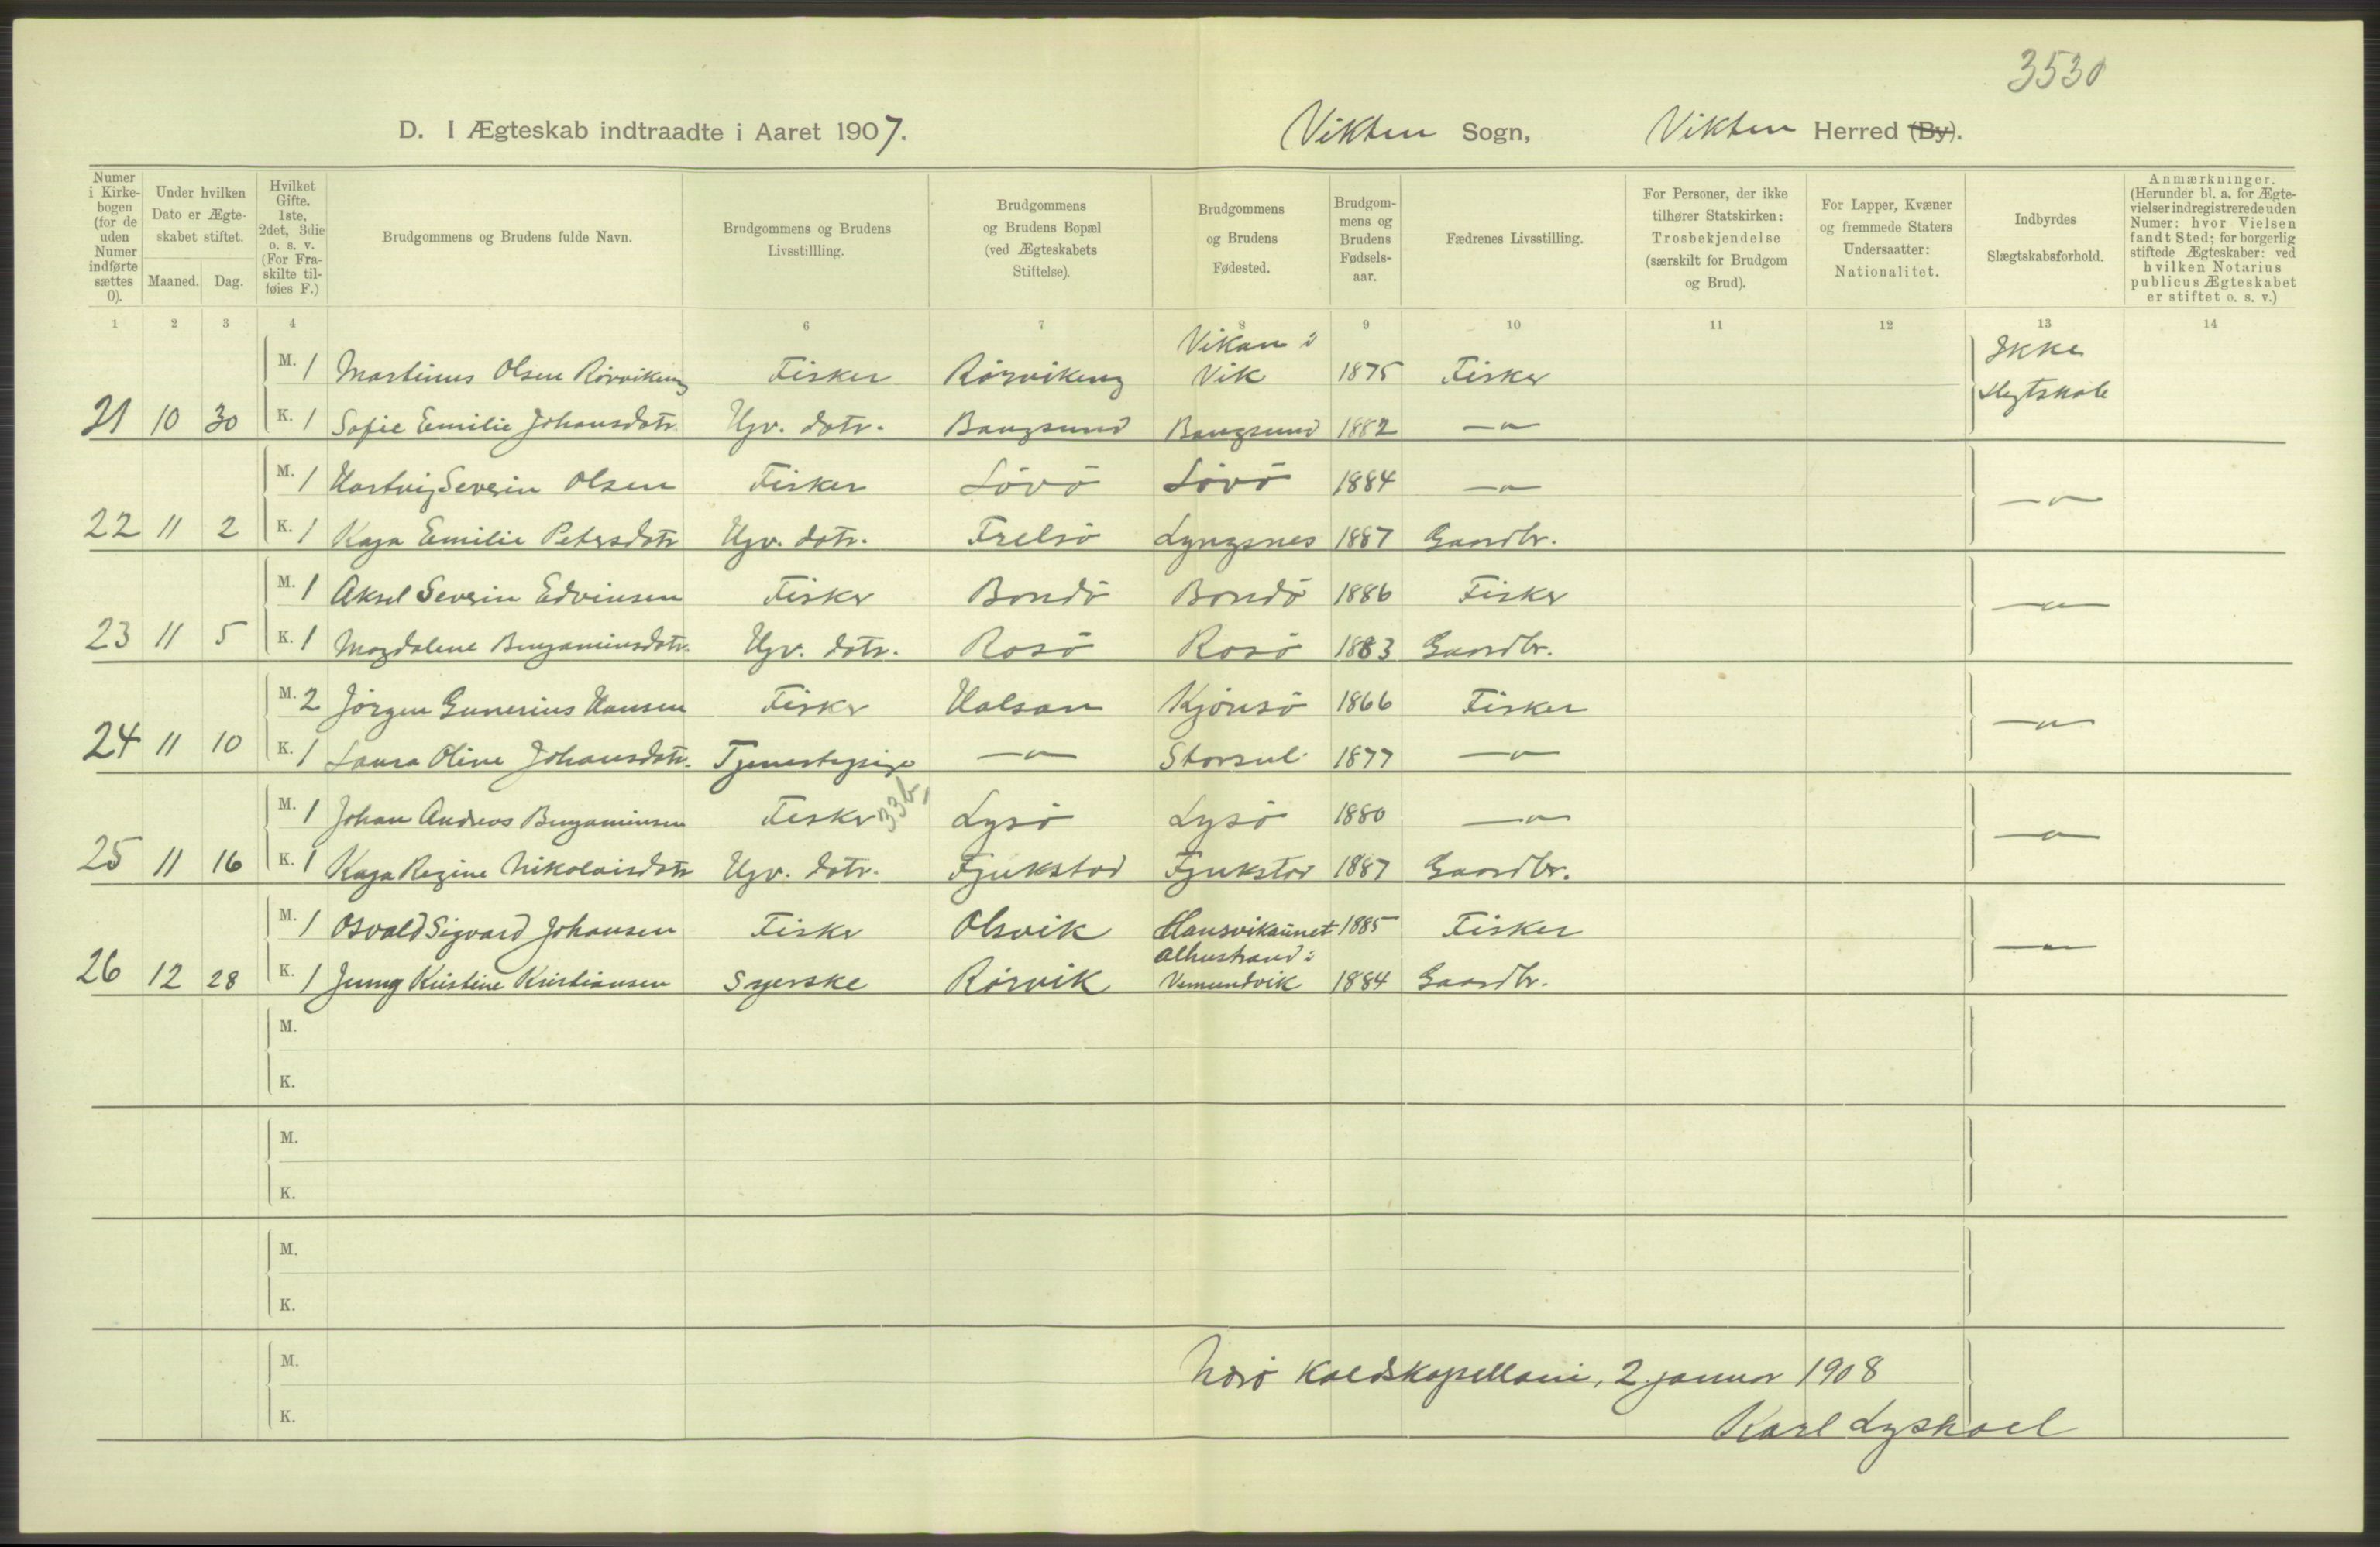 3530
D. I Ægteskab indtraadte i Aaret 1907. Vikten Sogn, Vikten Herred (By).
Numer i Kirkebogen (for de uden Numer indførte sættes 0).
Under hvilken Dato er Ægteskabet stiftet.
Maaned. Dag.
Hvilket Gifte. 1ste, 2det, 3die o. s. v. (For Fraskilte tilføies F.)
Brudgommens og Brudens fulde Navn.
Brudgommens og Brudens Livsstillling.
Brudgommens og Brudens Bopæl (ved Ægteskabets Stiftelse).
Brudgommens og Brudens Fødested.
Brudgommens og Brudens Fødselsaar.
Fædrenes Livsstilling.
For Personer, der ikke tilhører Statskirken: Trosbekjendelse (særskilt for Brudgom og Brud).
For Lapper, Kvæner og fremmede Staters Undersaatter: Nationalitet.
Indbyrdes Slægtskabsforhold.
Anmærkninger. (Herunder bl. a. for Ægtevielser indregistrerede uden Numer: hvor Vielsen fandt Sted; for borgerlig stiftede Ægteskaber: ved hvilken Notarius publicus Ægteskabet er stiftet o. s. v.)
1 2 3 4 6 7 8 9 10 11 12 13 14
M. 1 Martinus Olsen Rörvikeng Fisker Rörvikeng Vikan i Vik 1875 Fisker Ikke
21 10 30 K. 1 Sofie Emilie Johansdotr. Hjv. dotr. Bangsund Bangsund 1882 —"—
M. 1 Hartvig Severin Olsen Fisker Lövö Lövö 1884 —"— —"—
22 11 2 K. 1 Kaja Emilie Petersdotr Hjv. dotr. Frelsö Lyngsnes 1887 Gaardbr.
M. 1 Aksel Severin Edvinsen Fisker Bondö Bondö 1886 Fisker —"—
23 11 5 K. 1 Magdalene Benjaminsdotr. Hjv. dotr. Rosö Rosö 1883 Gaardbr.
M. 2 Jörgen Gunerius Hansen Fisker Halsan Kjönsö 1866 Fisker —"—
24 11 10 K. 1 Laura Oline Johansdotr. Tjenestepige —"— Storsul. 1877 —"—
M. 1 Johan Andreas Benjaminsen Fisker Lysö Lysö 1880 —"— —"—
25 11 16 K. 1 Kaja Regine Nikolaisdotr Hjv. dotr. Fjukstad Fjukstad 1887 Gaardbr.
M. 1 Osvald Sigvard Johansen Fisker Olsvik Hansvikaunet 1885 Fisker —"—
26 12 28 K. 1 Jenny Kristine Kristiansen Syerske Rörvik Alhustrand i Vemundvik 1884 Gaardbr.
M.
K.
M.
K.
M.
K.
M.
K.
Nærö Kaldskapellani, 2. januar 1908
Karl Lyshoel